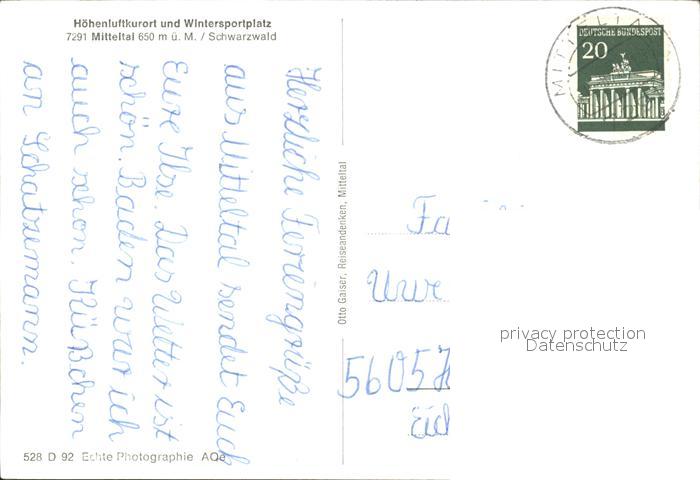 Höhenluftkurort und Wintersportplatz
7291 Mitteltal 650 m ü. M. / Schwarzwald
Herzliche Feriengrüße
aus Mitteltal sendet Euch
Eure Ilse. Das Wetter ist
schön. Baden war ich
auch schon. Küßchen
an Schatzemann.
528 D 92 Echte Photographie
Otto Gaiser, Reiseandenken, Mitteltal
MITTELTAL
DEUTSCHE BUNDESPOST
20
Fa
Uwe
5605
Eich
privacy protection
Datenschutz